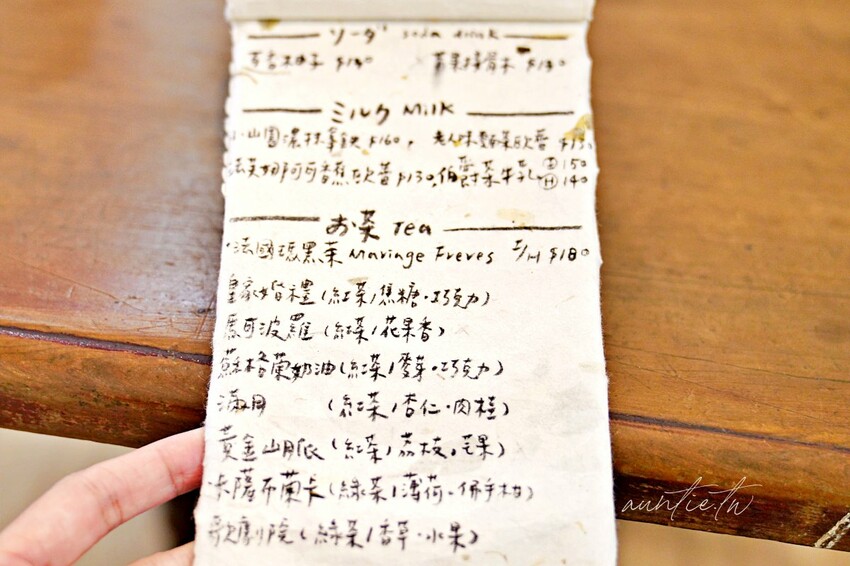 ソーダ soda drink
百香柚子 $140 青果接骨木 $140
ミルク Milk
小山園濃抹拿鐵 $160, 老人味麵茶歐蕾 $130
法芙娜阿可香蕉歐蕾 $130, 伯爵茶牛乳 Ⓘ150 Ⓗ140
お茶 Tea
·法國瑪黑茶 Mariage Freres I/H $180
皇家婚禮(紅茶/焦糖·巧克力)
馬可波羅(紅茶/花果香)
蘇格蘭奶油(紅茶/麥芽·巧克力)
滿月 (紅茶/杏仁·肉桂)
黃金山脈(紅茶/荔枝,芒果)
卡薩布蘭卡(綠茶/薄荷·佛手柑)
歌劇院(綠茶/香草·水果)
auntie.tw